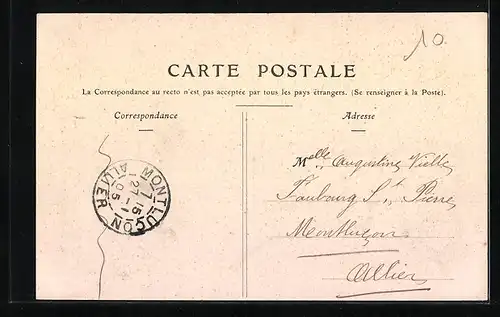 10
CARTE POSTALE
La Correspondance au recto n'est pas acceptée par tous les pays étrangers. (Se renseigner à la Poste).
Correspondance
Adresse
Melle Augustine Vielle
Faubourg St. Pierre
Montluçon
Allier
MONTLUÇON
27 -1
05
ALLIER